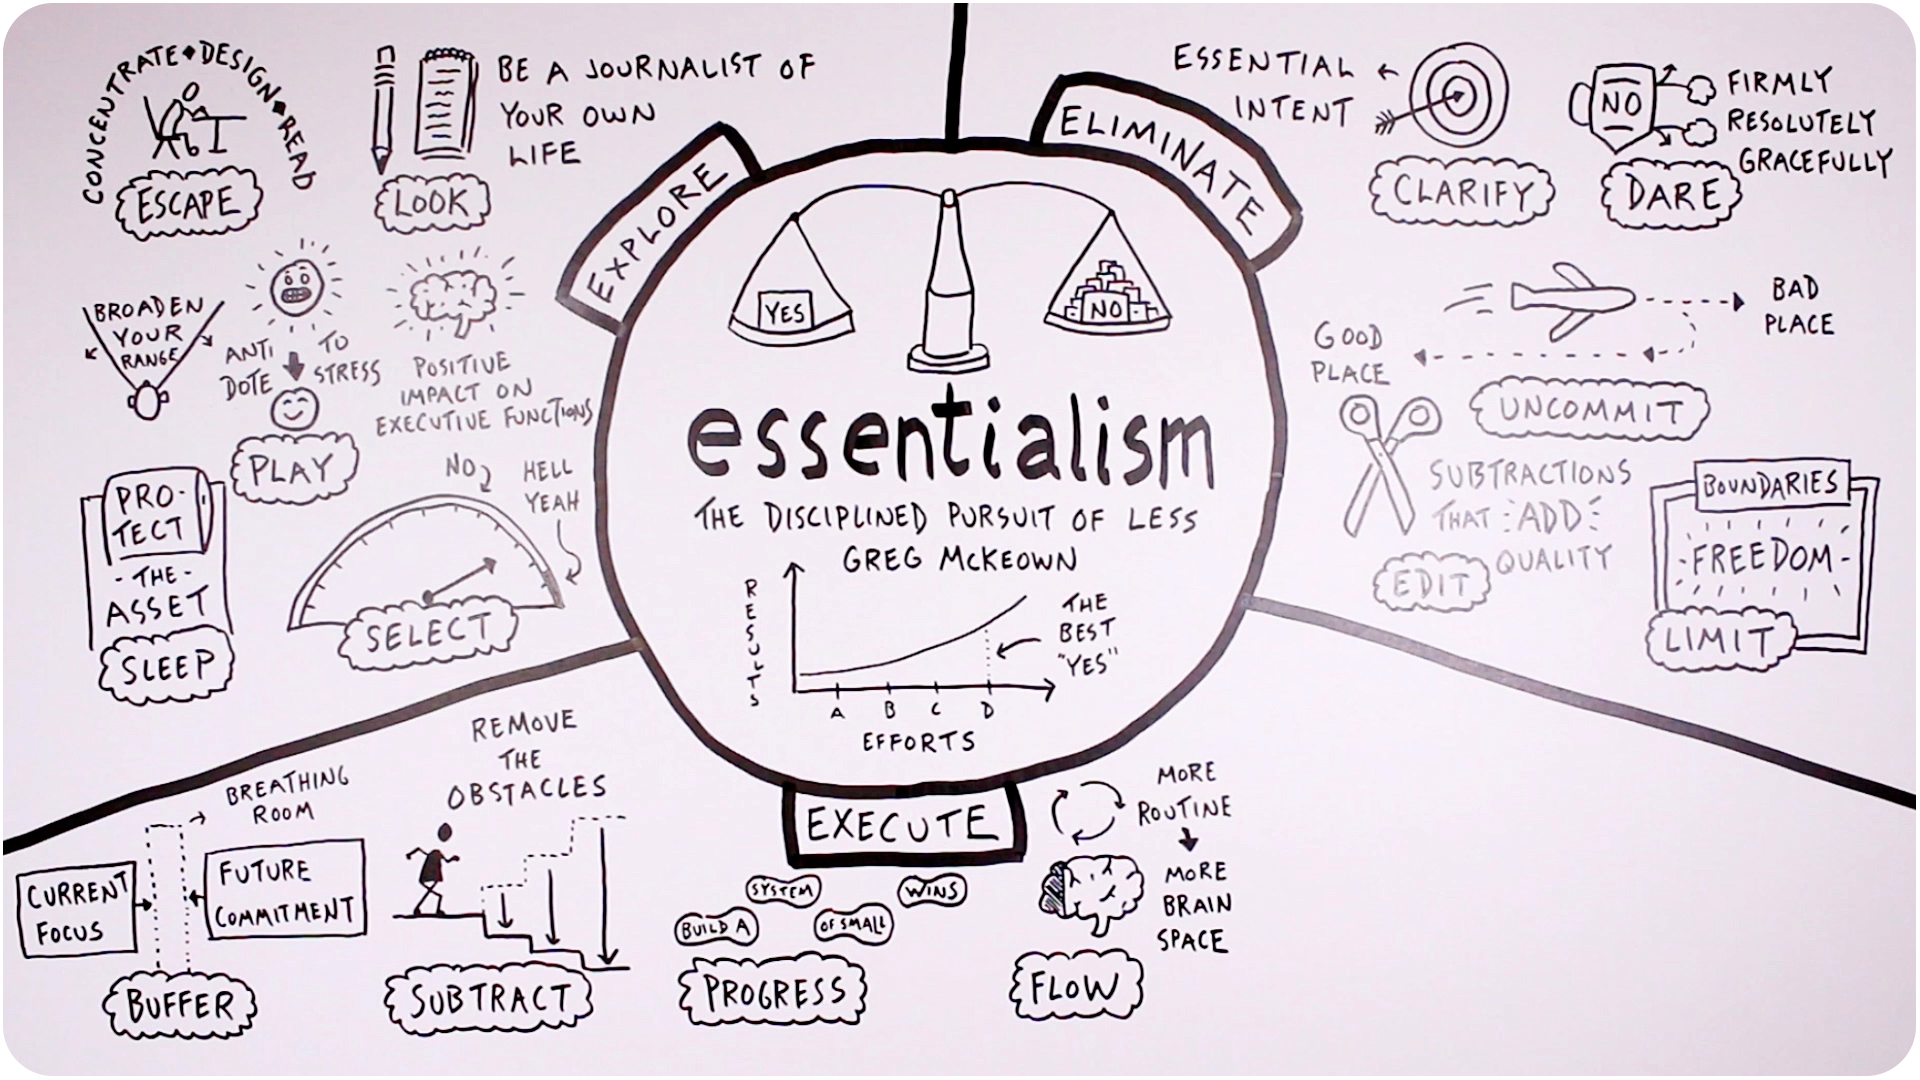 CONCENTRATE◆DESIGN◆READ
ESCAPE
LOOK
BE A JOURNALIST OF
YOUR OWN
LIFE
EXPLORE
BROADEN
YOUR
RANGE
ANTI
DOTE
TO
STRESS
PLAY
POSITIVE
IMPACT ON
EXECUTIVE FUNCTIONS
PRO-
TECT
-THE-
ASSET
SLEEP
NO
HELL
YEAH
SELECT
YES
NO
essentialism
THE DISCIPLINED PURSUIT OF LESS
GREG McKEOWN
RESULTS
A B C D
EFFORTS
THE
BEST
"YES"
ELIMINATE
ESSENTIAL
INTENT
CLARIFY
NO
FIRMLY
RESOLUTELY
GRACEFULLY
DARE
BAD
PLACE
GOOD
PLACE
UNCOMMIT
SUBTRACTIONS
THAT ADD
QUALITY
EDIT
BOUNDARIES
-FREEDOM-
LIMIT
EXECUTE
BREATHING
ROOM
CURRENT
FOCUS
FUTURE
COMMITMENT
BUFFER
REMOVE
THE
OBSTACLES
SUBTRACT
BUILD A
SYSTEM
OF SMALL
WINS
PROGRESS
MORE
ROUTINE
MORE
BRAIN
SPACE
FLOW